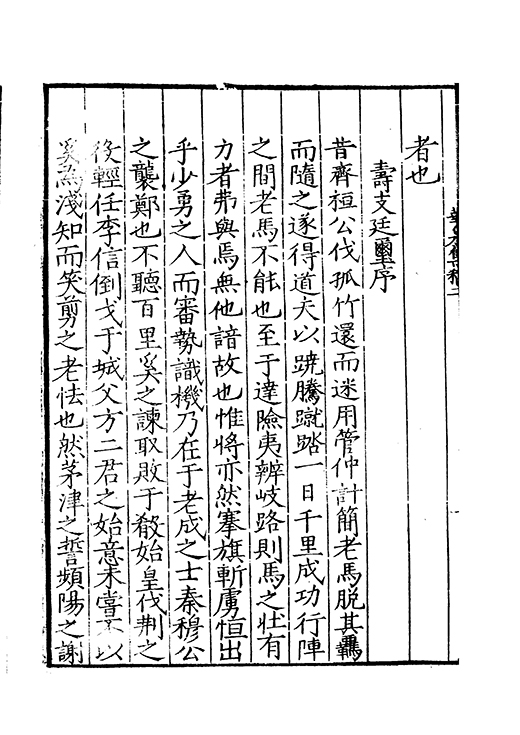 者也
壽支廷璽序
昔齊桓公伐孤竹還而迷用管仲計簡老馬脫其羈
而隨之遂得道夫以蹺騰蹴踏一日千里成功行陣
之間老馬不能也至于達險夷辨岐路則馬之壯有
力者弗與焉無他諳故也惟將亦然搴旗斬虜恒出
乎少勇之人而審勢識機乃在于老成之士秦穆公
之襲鄭也不聽百里奚之諫取敗于殽始皇伐荆之
役輕任李信倒戈于城父方二君之始意未嘗不以
奚為淺知而笑剪之老怯也然茅津之誓頻陽之謝